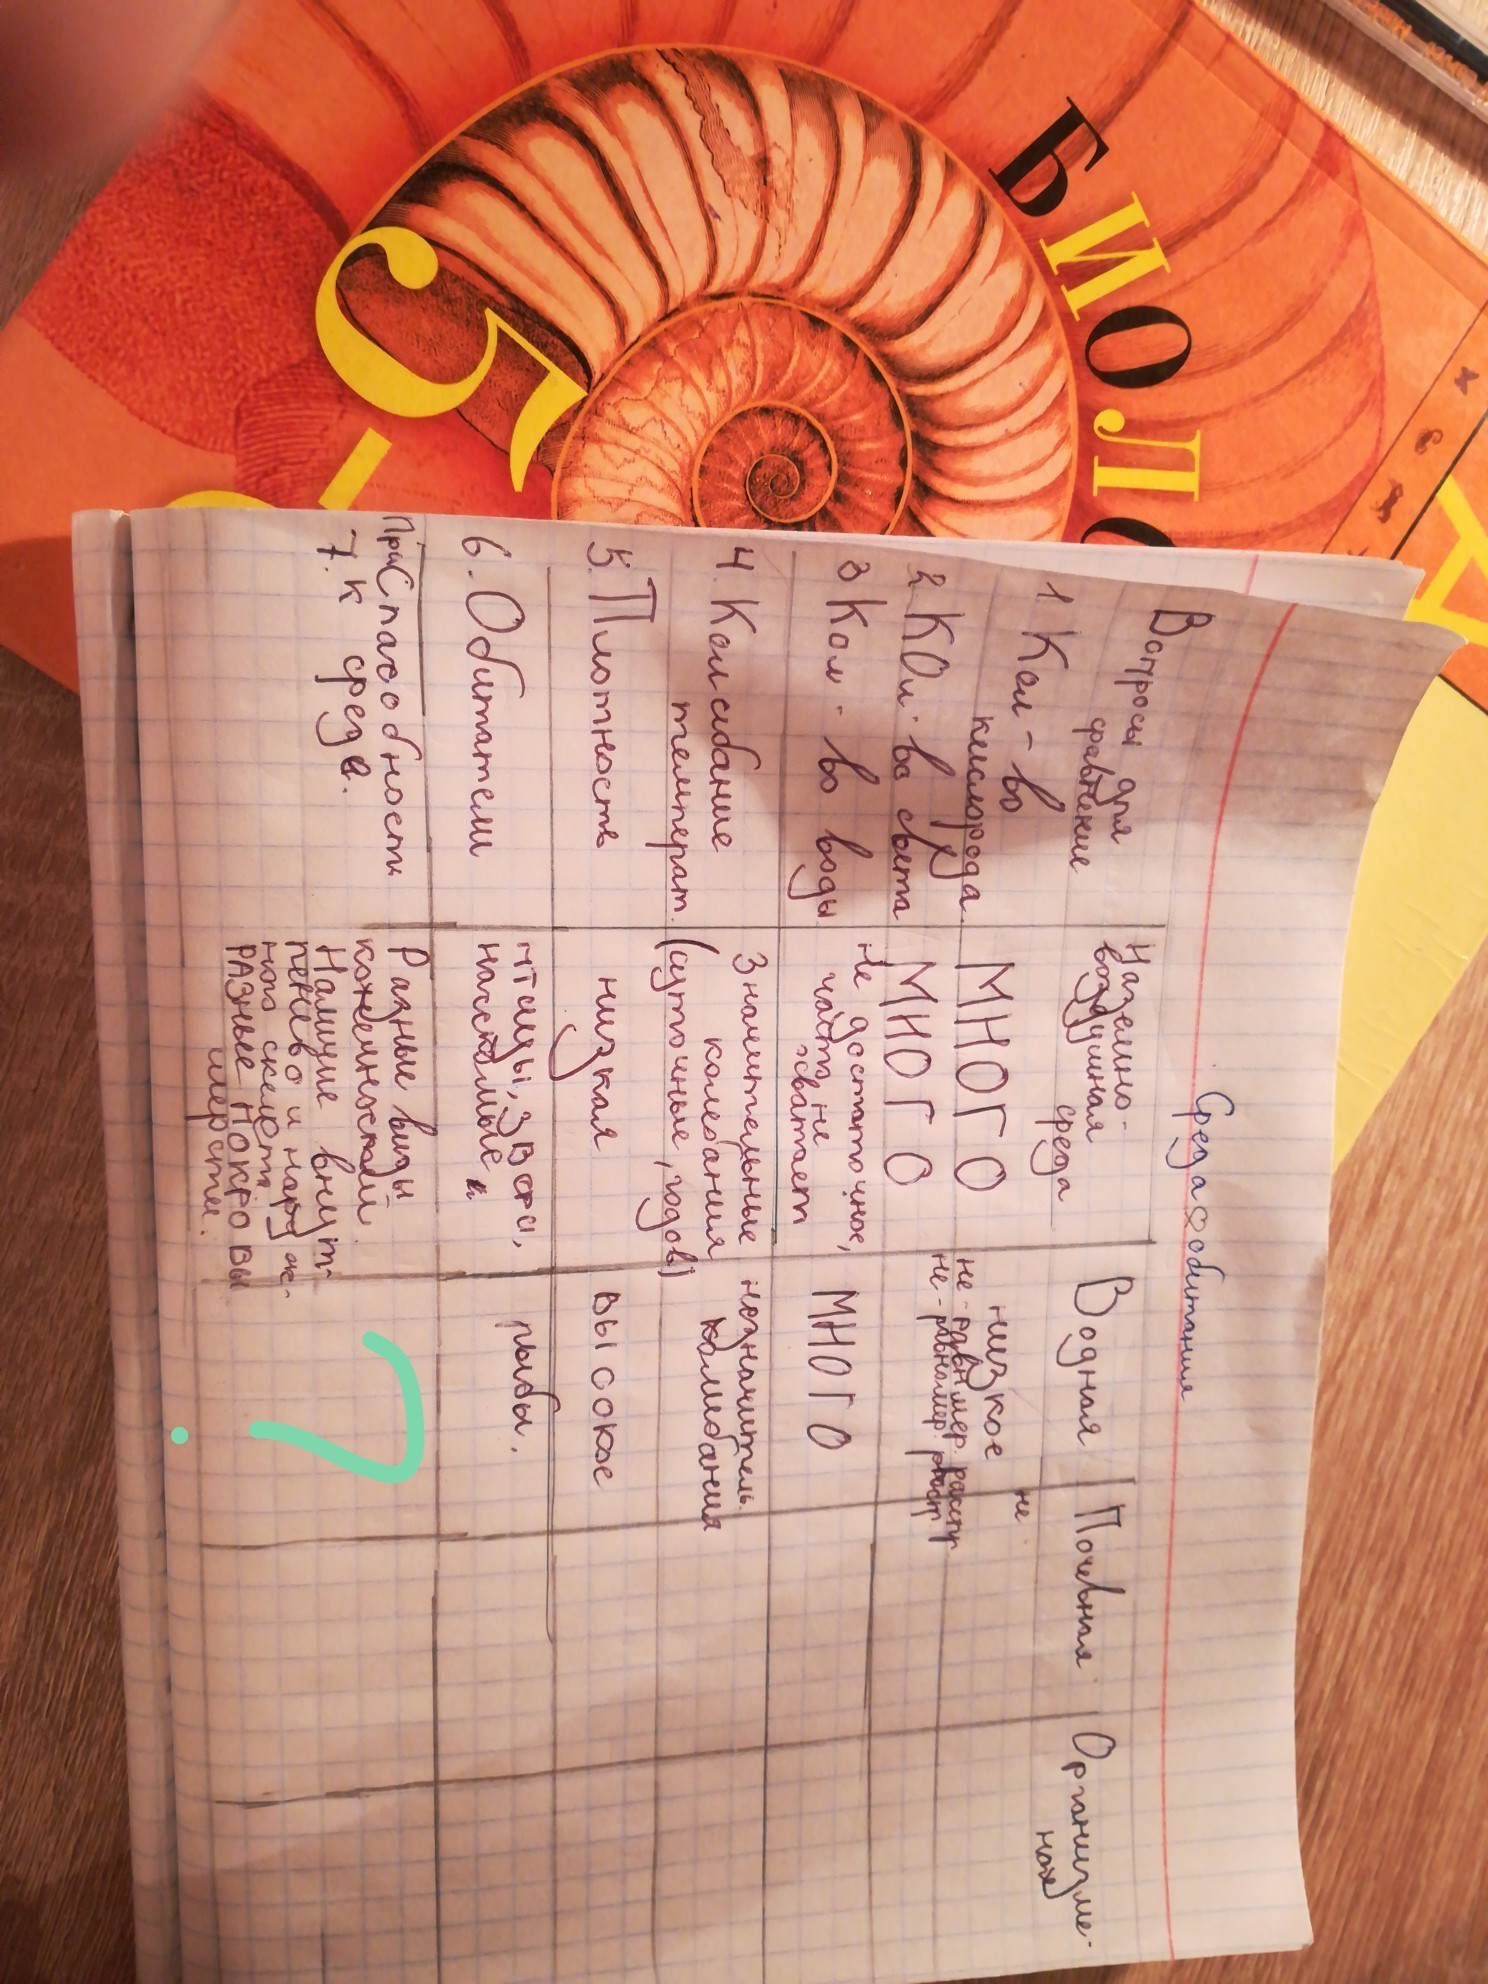 БИОЛО
5-
Среда обитания
Вопросы для
сравнение
Наземно-
воздушная
среда
Водная
Почевная
Организме-
ная
1 Кол-во
кислорода
МНОГО
низкое
не
не-равн мер. распр
2. КОл-во света
МНОГО
не-равномер.
3 Кол-во воды
не достаточное,
часть не
хватает
МНОГО
4. Колебание
температ.
Значительные
колебания
(суточные, годов)
незначитель.
колебания
5. Плотность
низкая
высокое
6. Обитатели
птицы, звери,
насекомые
рыбы.
Приспасобности
7. к среде.
Разные виды
конечностей.
Наличие внут-
ненево и наруж-
ного скелета.
РАЗНЫЕ ПОКРОВЫ
шерсти.
?